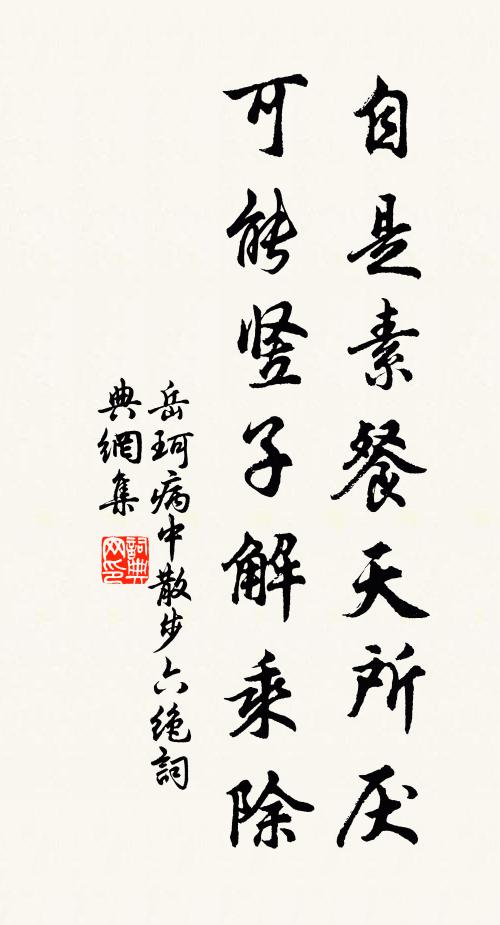 自是素餐天所厌
可能竖子解乘除
岳珂病中散步六绝詞
典網集
詞典
网印